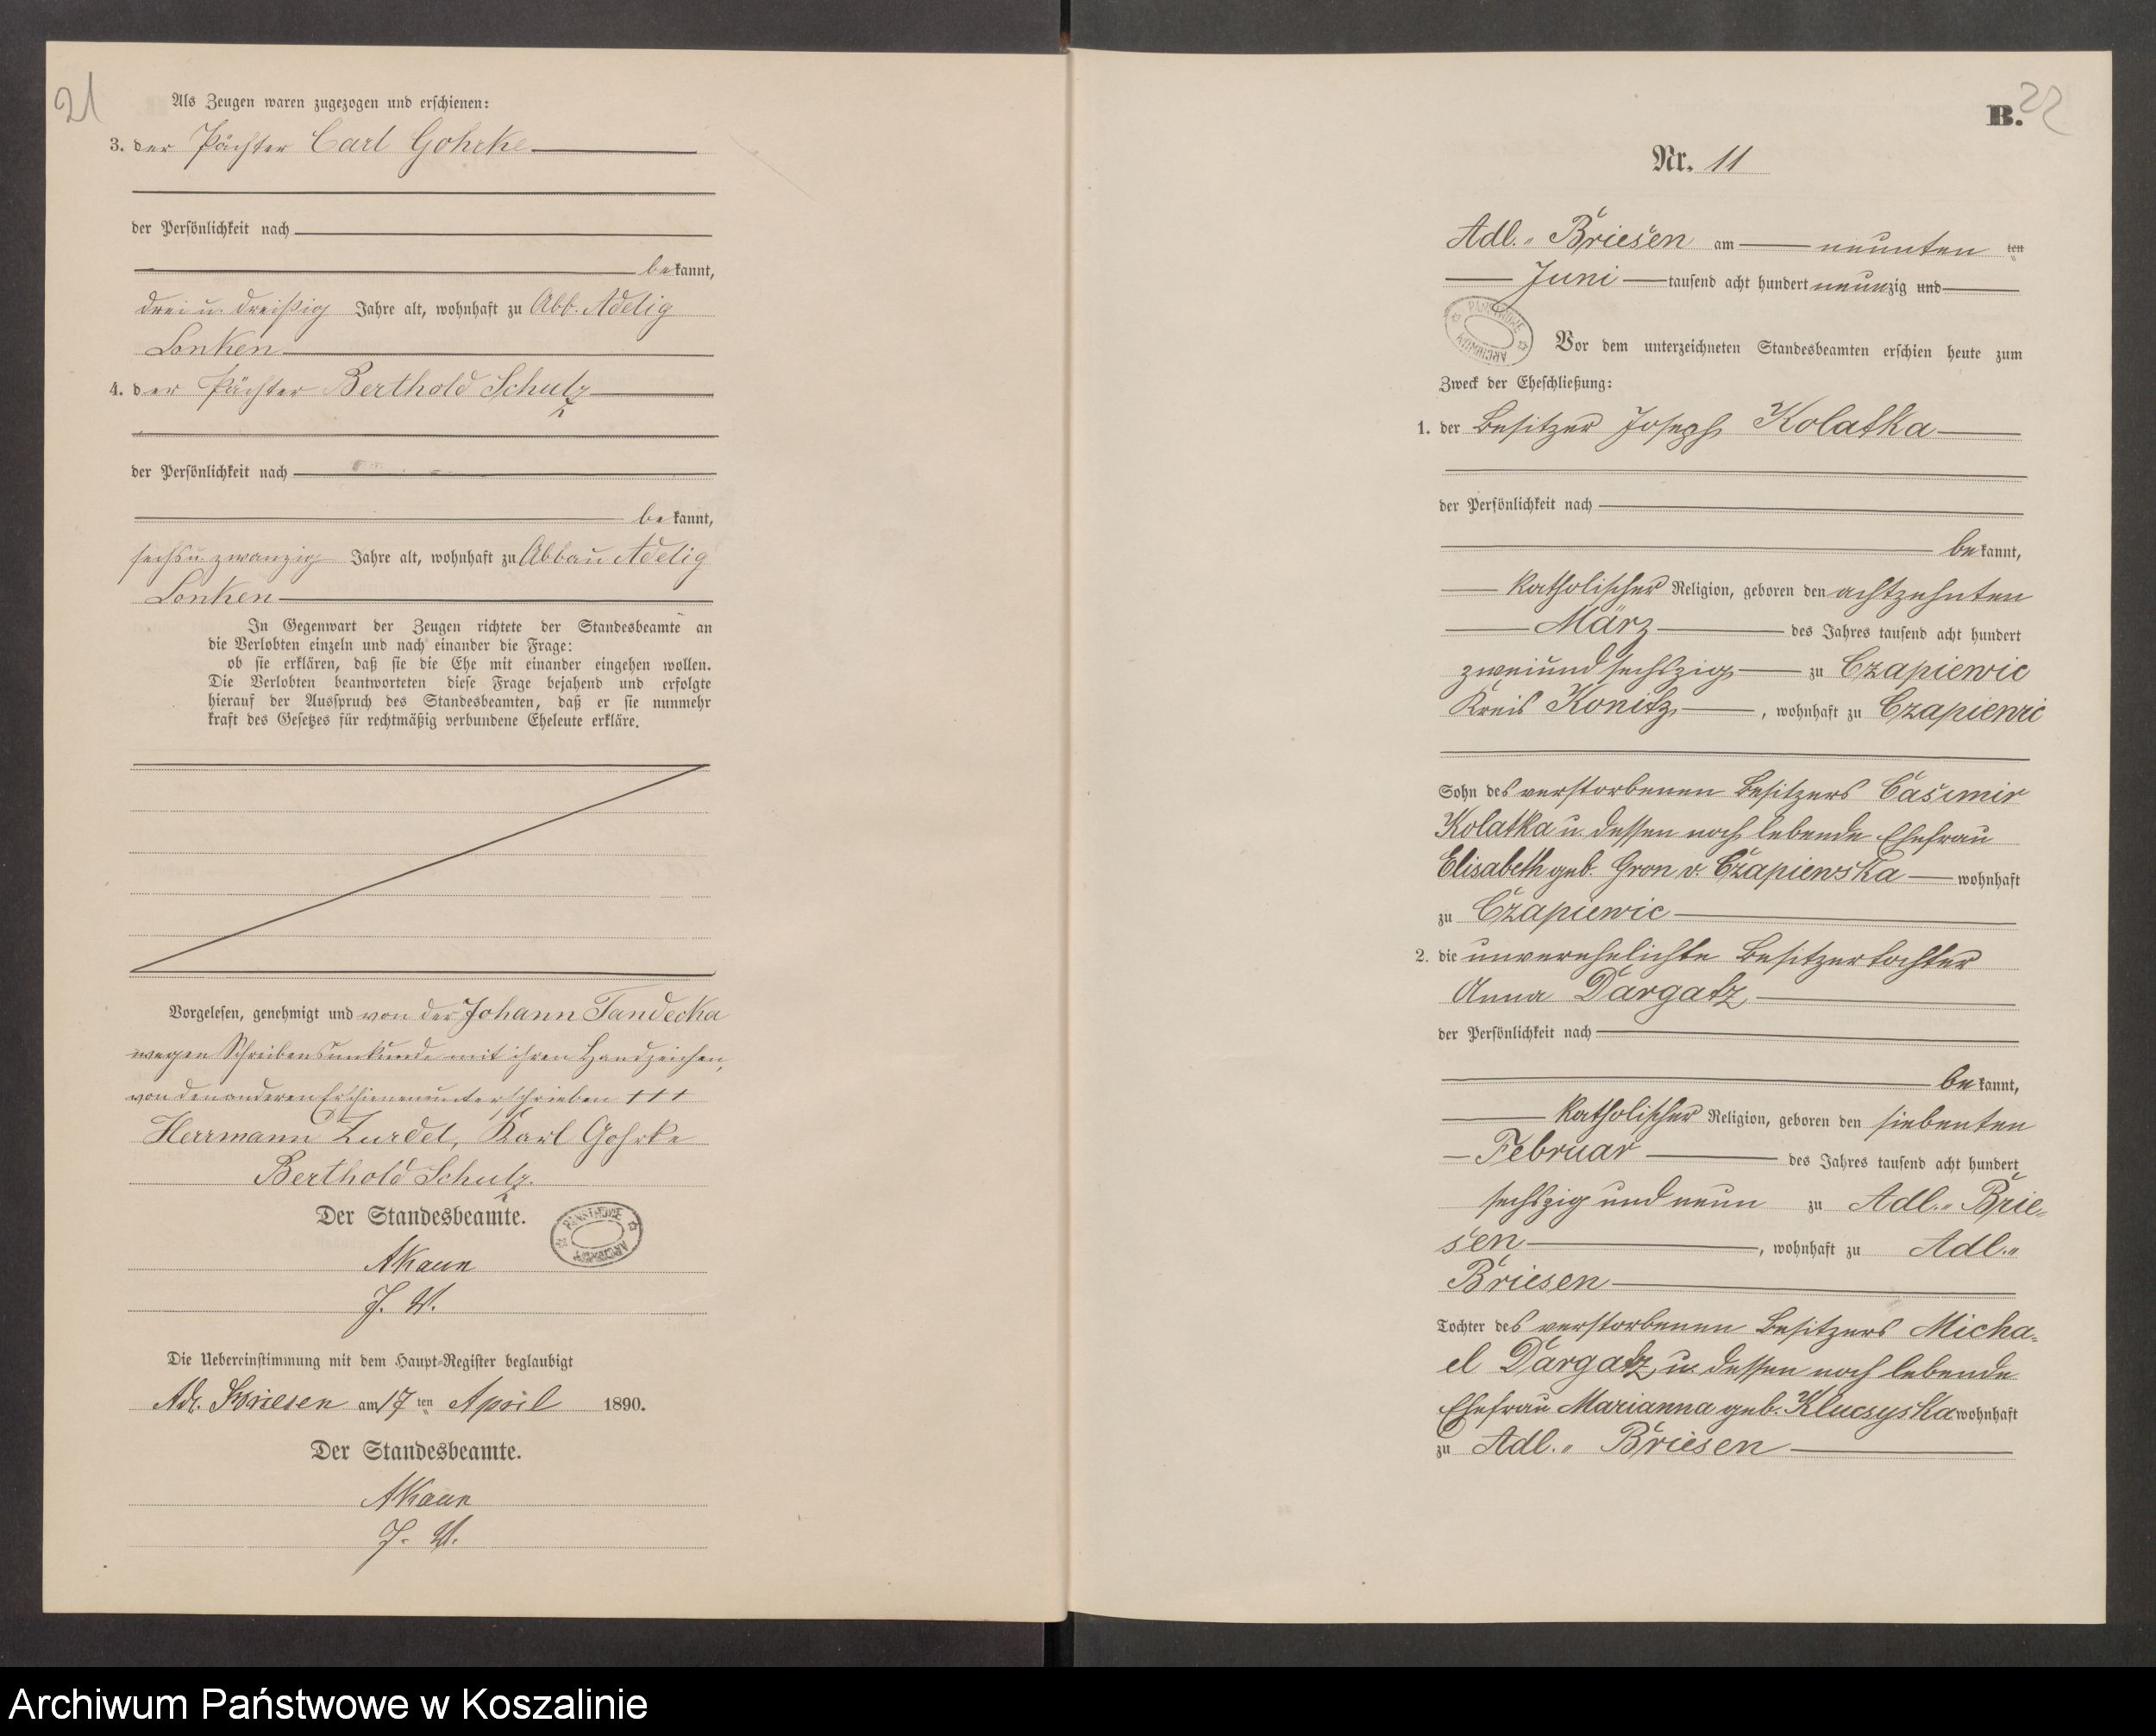 21
Als Zeugen waren zugezogen und erschienen:
3. der Pächter Carl Gohrke
der Persönlichkeit nach
bekannt,
drei u. dreißig Jahre alt, wohnhaft zu Abb. Adelig
Lonken
4. der Pächter Berthold Schulz
der Persönlichkeit nach
bekannt,
sechs u. zwanzig Jahre alt, wohnhaft zu Abbau Adelig
Lonken
In Gegenwart der Zeugen richtete der Standesbeamte an
die Verlobten einzeln und nach einander die Frage:
ob sie erklären, daß sie die Ehe mit einander eingehen wollen.
Die Verlobten beantworteten diese Frage bejahend und erfolgte
hierauf der Ausspruch des Standesbeamten, daß er sie nunmehr
kraft des Gesetzes für rechtmäßig verbundene Eheleute erkläre.
Vorgelesen, genehmigt und von der Johann Tandecka
wegen Schreibensunkunde mit ihren Handzeichen,
von den anderen Erschienen unterschrieben +++
Herrmann Zurdel, Karl Gohrke
Berthold Schulz.
Der Standesbeamte.
PAŃSTWOWE ARCHIWUM
J. V.
Die Uebereinstimmung mit dem Haupt-Register beglaubigt
Adl. Briesen am 17ten April 1890.
Der Standesbeamte.
J. V.
B. 22
Nr. 11
Adl. Briesen am neunten ten
Juni tausend acht hundert neunzig und
PAŃSTWOWE ARCHIWUM
Vor dem unterzeichneten Standesbeamten erschien heute zum
Zweck der Eheschließung:
1. der Besitzer Joseph Kolatka
der Persönlichkeit nach
bekannt,
katholischer Religion, geboren den achtzehnten
März des Jahres tausend acht hundert
zweiundsechszig zu Czapiewic
Kreis Konitz, wohnhaft zu Czapiewic
Sohn des verstorbenen Besitzers Casimir
Kolatka u. dessen noch lebende Ehefrau
Elisabeth geb. Gron v. Czapiewska wohnhaft
zu Czapiewic
2. die unverehelichte Besitzertochter
Anna Dargatz
der Persönlichkeit nach
bekannt,
katholischer Religion, geboren den siebenten
Februar des Jahres tausend acht hundert
sechszig und neun zu Adl. Brie-
sen, wohnhaft zu Adl.
Briesen
Tochter des verstorbenen Besitzers Micha-
el Dargatz u. dessen noch lebende
Ehefrau Marianna geb. Klucsyska wohnhaft
zu Adl. Briesen
Archiwum Państwowe w Koszalinie